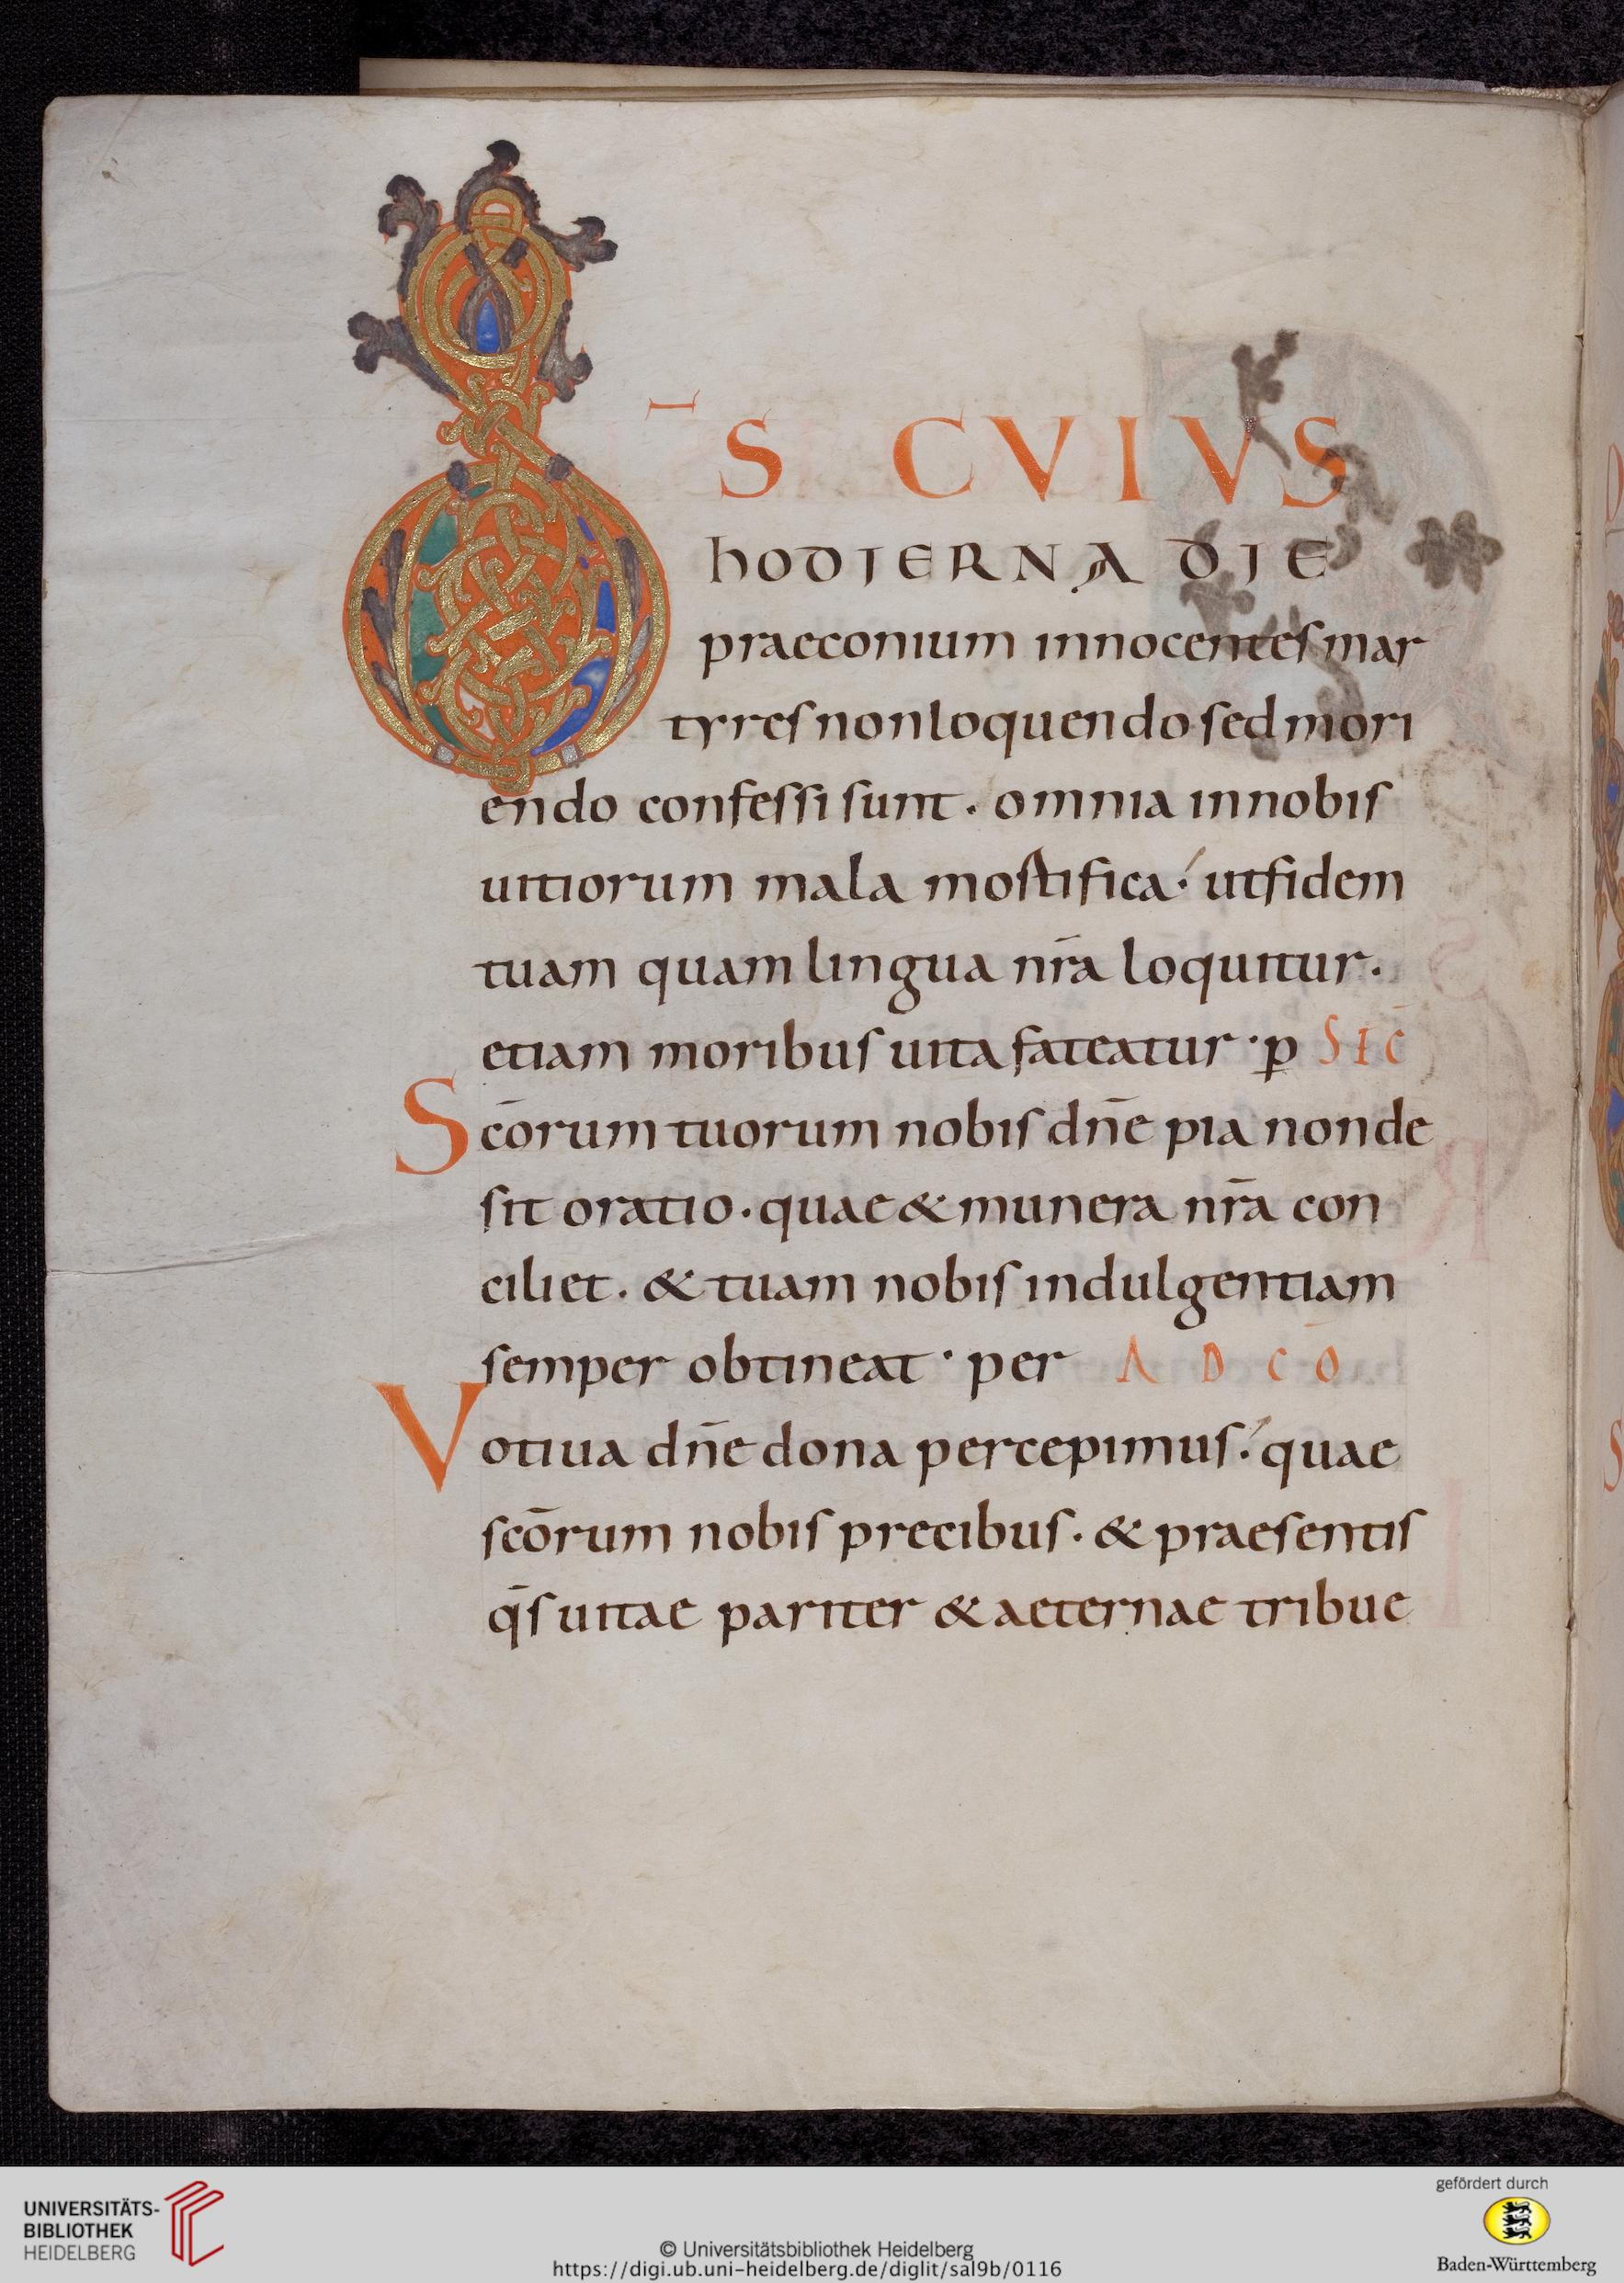 D̄S CVIVS
hODIERNA DIE
praeconium innocentes mar
tyres non loquendo sed mori
endo confessi sunt. omnia in nobis
uitiorum mala mostifica; ut fidem
tuam quam lingua nr̄a loquitur.
etiam moribus uita fateatur · ꝑ SĪC̄
Sc̄orum tuorum nobis dn̄e pia non de
sit oratio. quae & munera nr̄a con
ciliet. & tuam nobis indulgentiam
semper obtineat · per AD CŌ
Votiua dn̄e dona percepimus; quae
scōrum nobis precibus. & praesentis
q̄s uitae pariter & aeternae tribue
UNIVERSITÄTS-
BIBLIOTHEK
HEIDELBERG
© Universitätsbibliothek Heidelberg
https://digi.ub.uni-heidelberg.de/diglit/sal9b/0116
gefördert durch
Baden-Württemberg